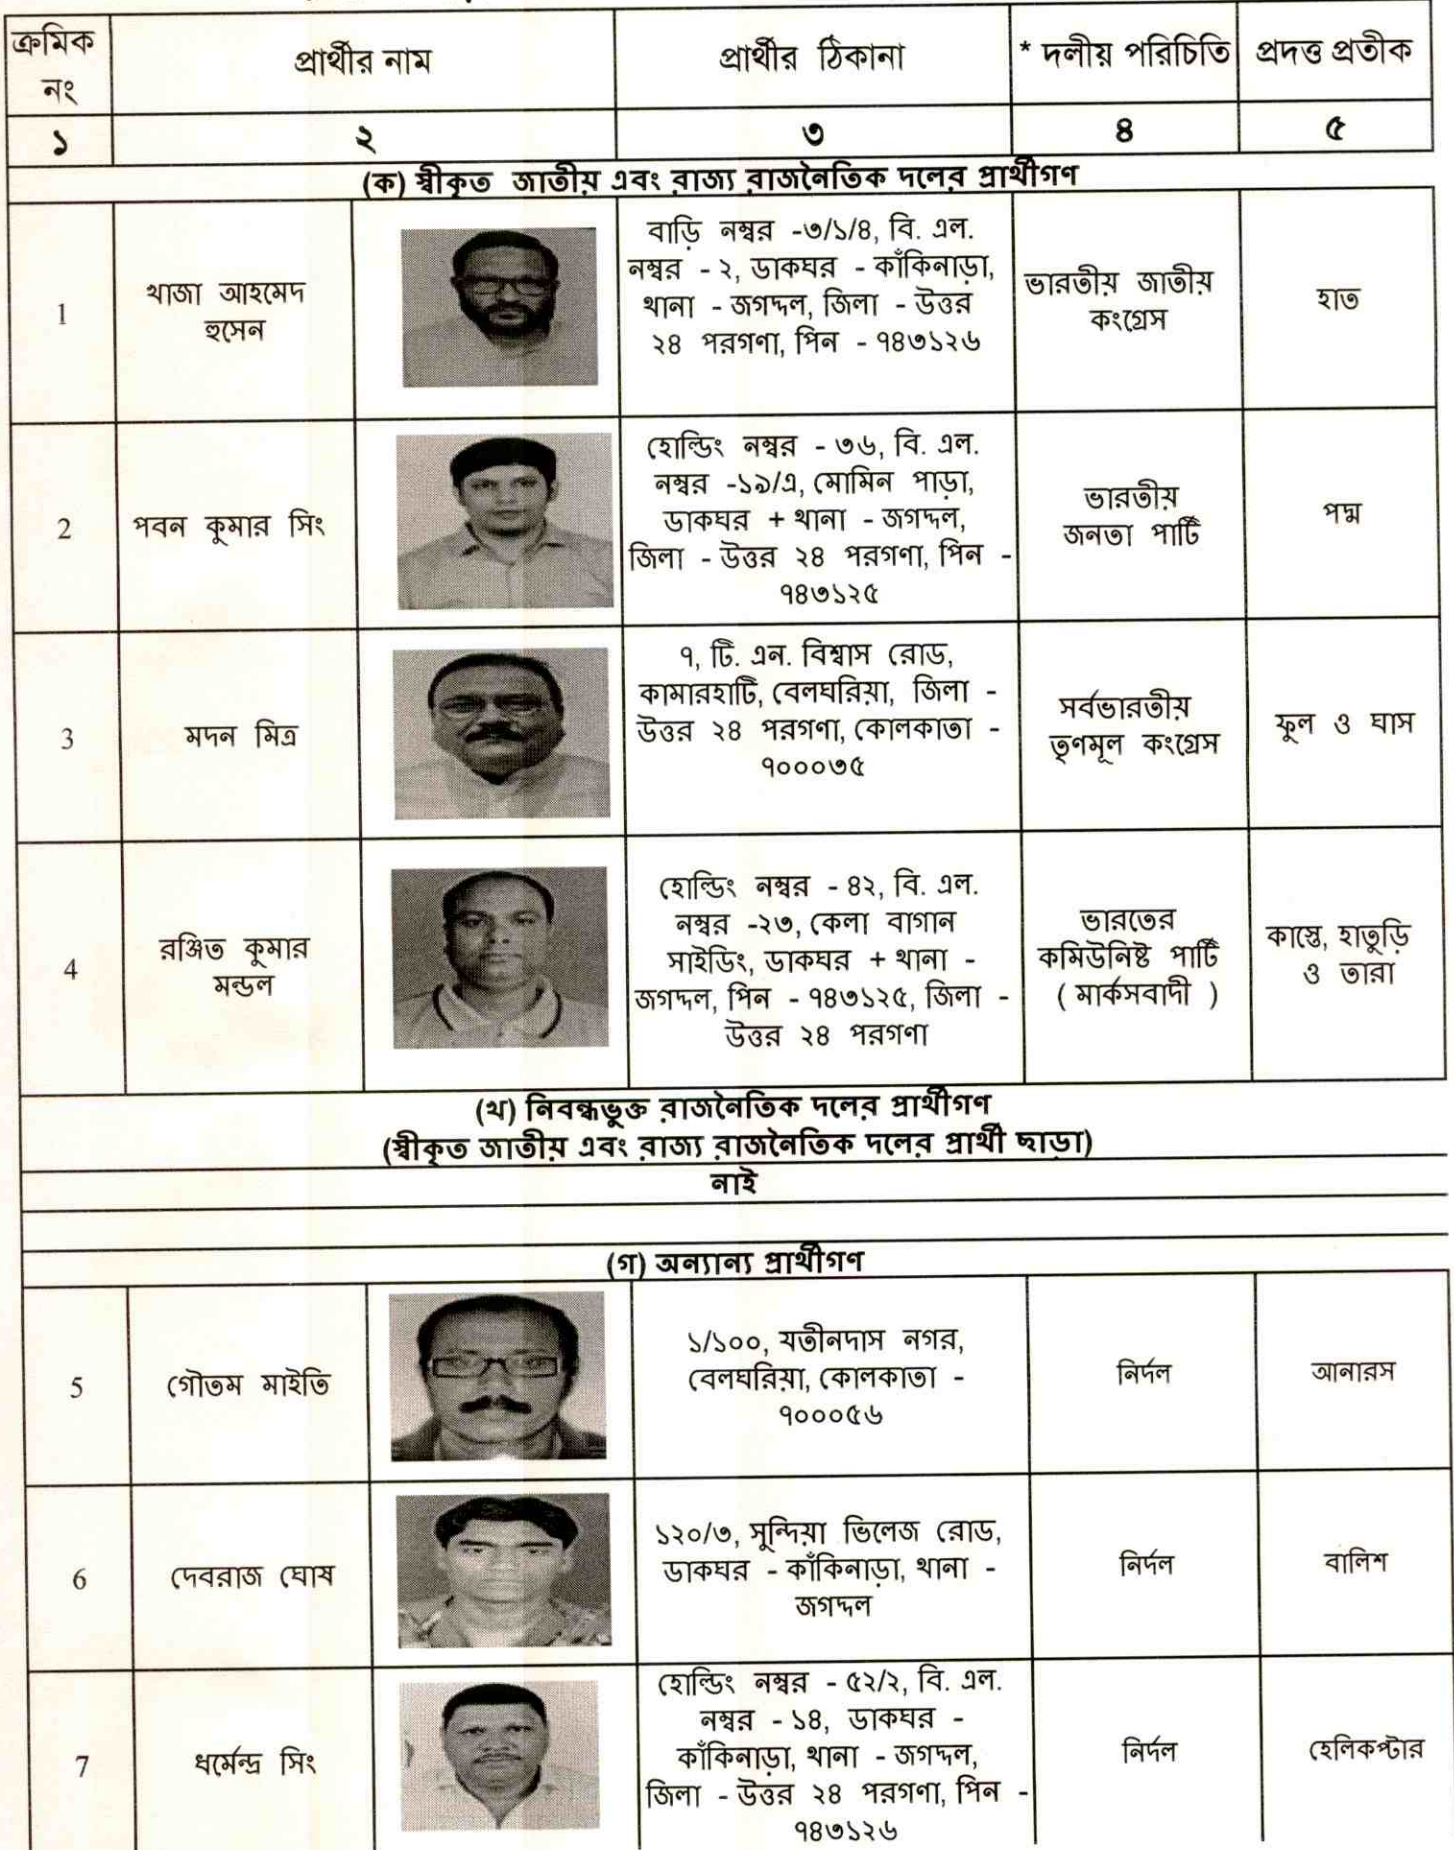 ক্রমিক নং
প্রার্থীর নাম
প্রার্থীর ঠিকানা
* দলীয় পরিচিতি
প্রদত্ত প্রতীক
১
২
৩
৪
৫
(ক) স্বীকৃত জাতীয় এবং রাজ্য রাজনৈতিক দলের প্রার্থীগণ
1
খাজা আহমেদ
হুসেন
বাড়ি নম্বর -৩/১/৪, বি. এল.
নম্বর - ২, ডাকঘর - কাঁকিনাড়া,
থানা - জগদ্দল, জিলা - উত্তর
২৪ পরগণা, পিন - ৭৪৩১২৬
ভারতীয় জাতীয়
কংগ্রেস
হাত
2
পবন কুমার সিং
হোল্ডিং নম্বর - ৩৬, বি. এল.
নম্বর -১৯/এ, মোমিন পাড়া,
ডাকঘর + থানা - জগদ্দল,
জিলা - উত্তর ২৪ পরগণা, পিন -
৭৪৩১২৫
ভারতীয়
জনতা পার্টি
পদ্ম
3
মদন মিত্র
৭, টি. এন. বিশ্বাস রোড,
কামারহাটি, বেলঘরিয়া, জিলা -
উত্তর ২৪ পরগণা, কোলকাতা -
৭০০০৩৫
সর্বভারতীয়
তৃণমূল কংগ্রেস
ফুল ও ঘাস
4
রঞ্জিত কুমার
মন্ডল
হোল্ডিং নম্বর - ৪২, বি. এল.
নম্বর -২৩, কেলা বাগান
সাইডিং, ডাকঘর + থানা -
জগদ্দল, পিন - ৭৪৩১২৫, জিলা -
উত্তর ২৪ পরগণা
ভারতের
কমিউনিষ্ট পার্টি
( মার্কসবাদী )
কাস্তে, হাতুড়ি
ও তারা
(খ) নিবন্ধভুক্ত রাজনৈতিক দলের প্রার্থীগণ
(স্বীকৃত জাতীয় এবং রাজ্য রাজনৈতিক দলের প্রার্থী ছাড়া)
নাই
(গ) অন্যান্য প্রার্থীগণ
5
গৌতম মাইতি
১/১০০, যতীনদাস নগর,
বেলঘরিয়া, কোলকাতা -
৭০০০৫৬
নির্দল
আনারস
6
দেবরাজ ঘোষ
১২০/৩, সুন্দিয়া ভিলেজ রোড,
ডাকঘর - কাঁকিনাড়া, থানা -
জগদ্দল
নির্দল
বালিশ
7
ধর্মেন্দ্র সিং
হোল্ডিং নম্বর - ৫২/২, বি. এল.
নম্বর - ১৪, ডাকঘর -
কাঁকিনাড়া, থানা - জগদ্দল,
জিলা - উত্তর ২৪ পরগণা, পিন -
৭৪৩১২৬
নির্দল
হেলিকপ্টার